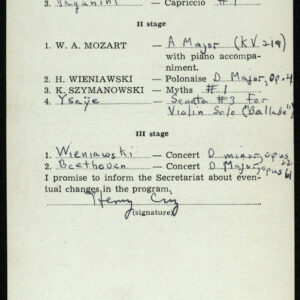 3. Paganini — Capriccio #1
II stage
1. W. A. MOZART — A Major (KV 219)
with piano accompa-
niment.
2. H. WIENIAWSKI — Polonaise D Major, Op. 4
3. K. SZYMANOWSKI — Myths #1
4. Ysaÿe — Sonata #3 For
Violin Solo ("Ballade")
III stage
1. Wieniawski — Concert D minor, opus 22
2. Beethoven — Concert D Major, opus 61
I promise to inform the Secretariat about even-
tual changes in the program.
Henry
(signature)